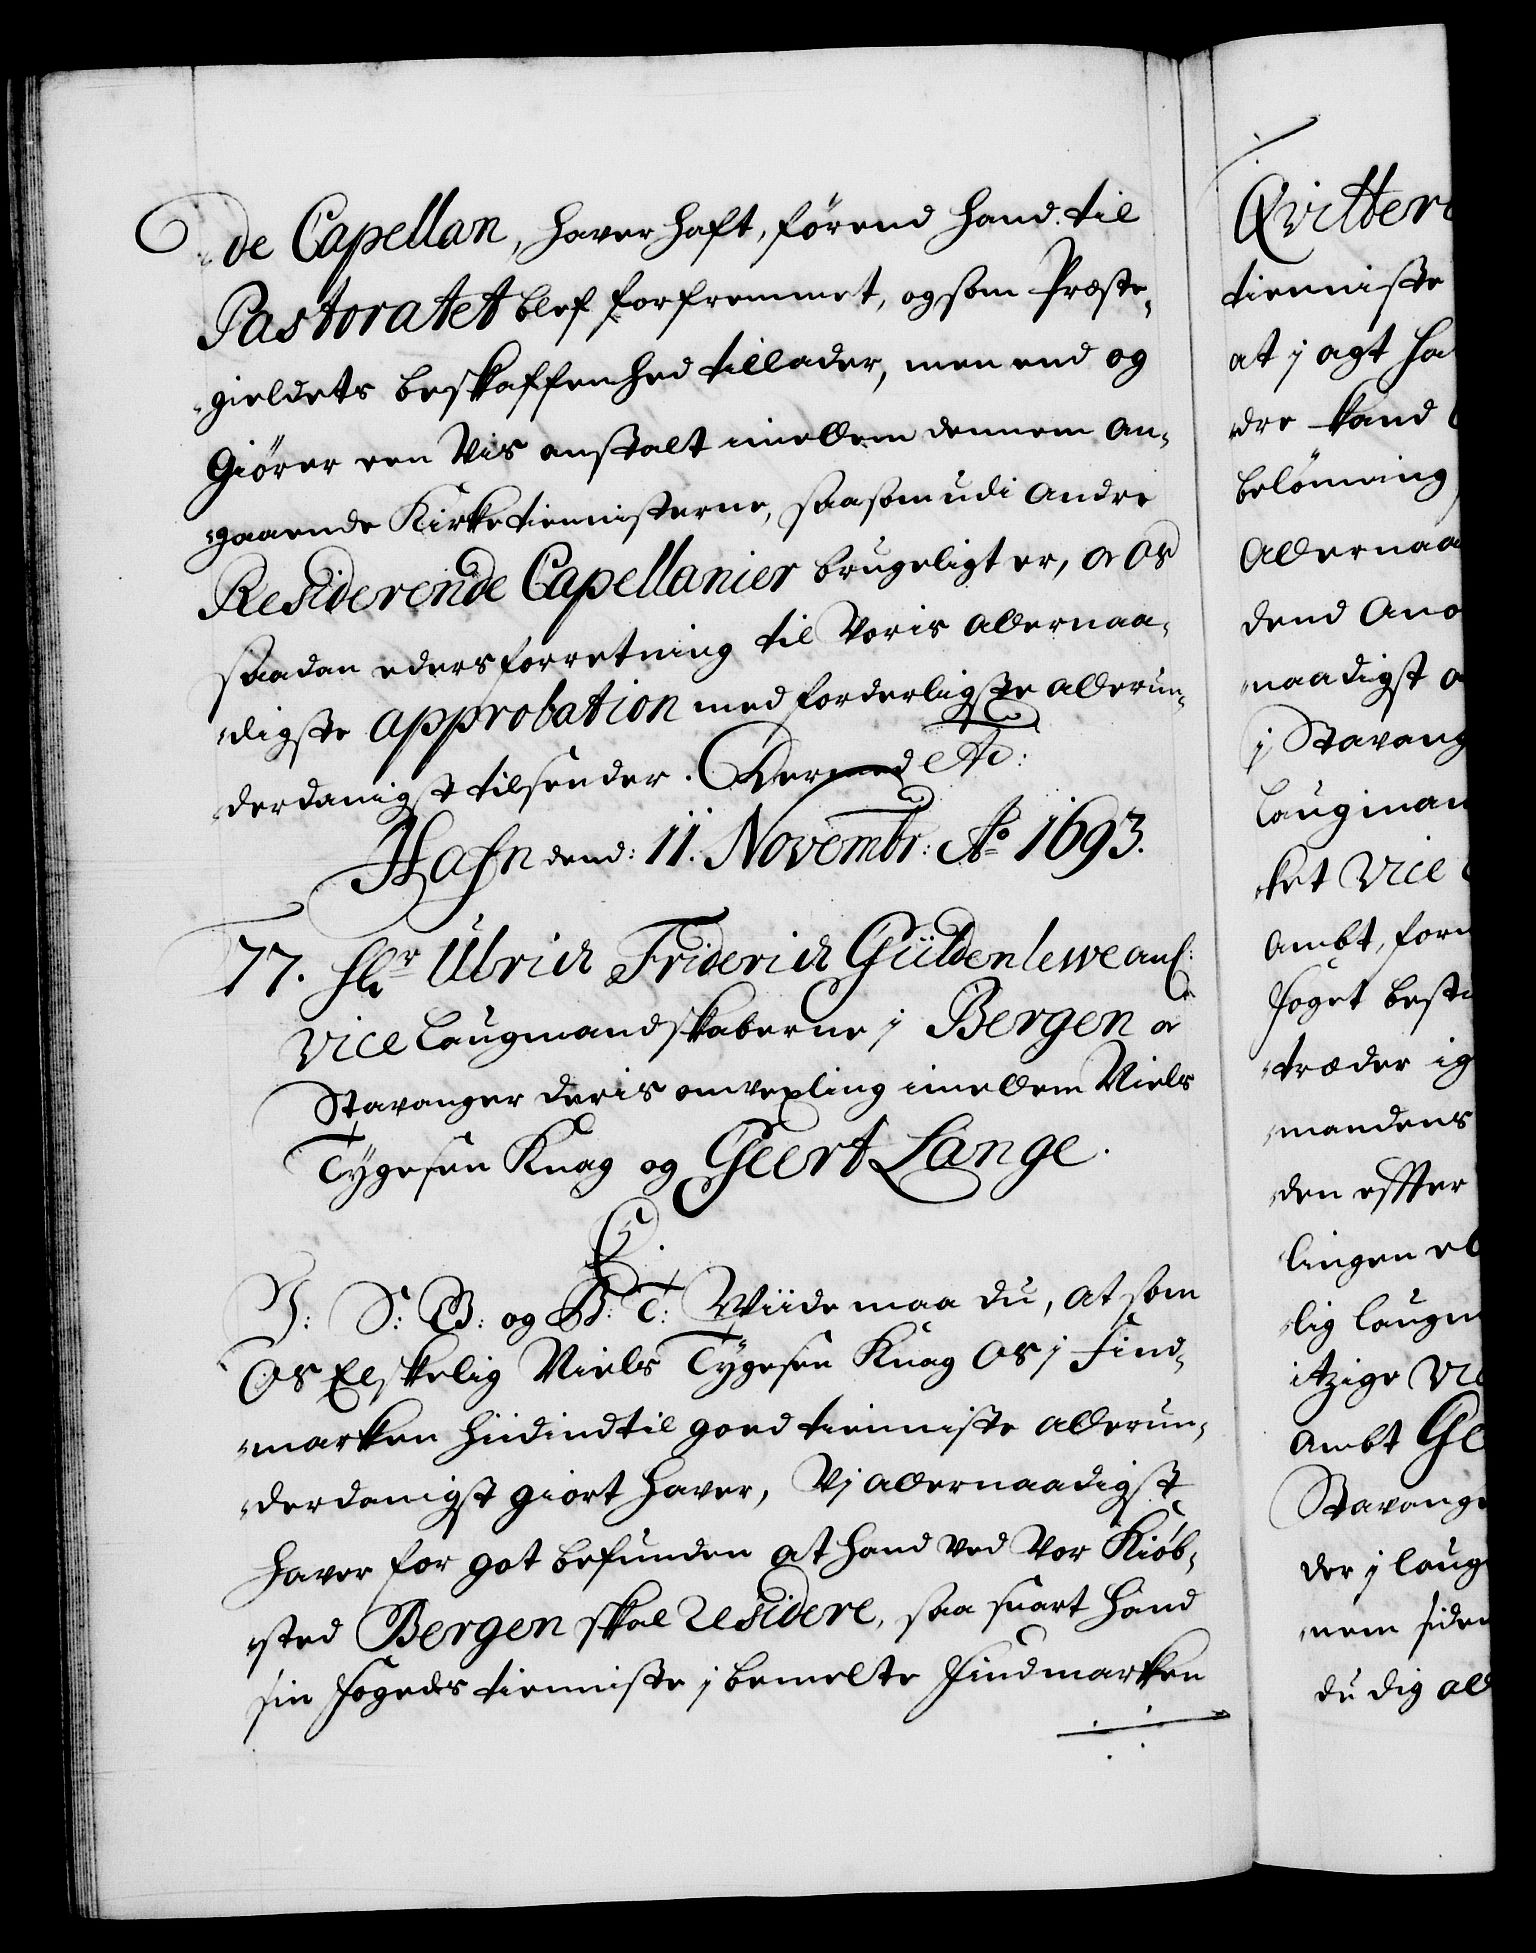 -de Capellan, hafver haft, førend hand til
Pastoratet blef forfremmet, og som Præste-
-gieldets beskaffenhed tillader, men end og
Giører een Vis anstalt imellem dennem an-
-gaaende Kirketiennisterne, saasom udi andre
Residerende Capellanier brugeligt er, & Os
saadan eders forretning til Voris allernaa-
-digste approbation med forderligste allerun-
derdanigst tilsender. Dermed Etc:
Hafn dend: 11. Novembr: Ao 1693.
77. Hr Ulrich Friderich Güldenlewe anl:
Vice Laugmandskaberne j Bergen &
Stavanger deris omvexling imellem Niels
Tygesen Knag og Geert Lange.
C5.
V: S: G: og B: T: Wiide maa du, at som
Os Elskelig Niels Tygesen Knag Os j Find-
-marken hiidindtil goed tienniste allerun-
-derdanigst giort hafver, Vj allernaadigst
hafver for got befunden at hand ved Vor Kiøb-
-sted Bergen skal residere, saa snart hand
sin fogeds tienniste j bemelte Findmarken
Qvitter
tienniste
at j agt ha
-dre kand
belønning
Allernaa
dend Ano
-naadigst
j Stavang
Laugman
-ket Vice
Ambt, for
foget best
-træder ig
-mandens
-den effter
lingen el
-lig laugm
itzige Vi
Ambt Ge
Stavang
der j laug
-nem siden
du dig all